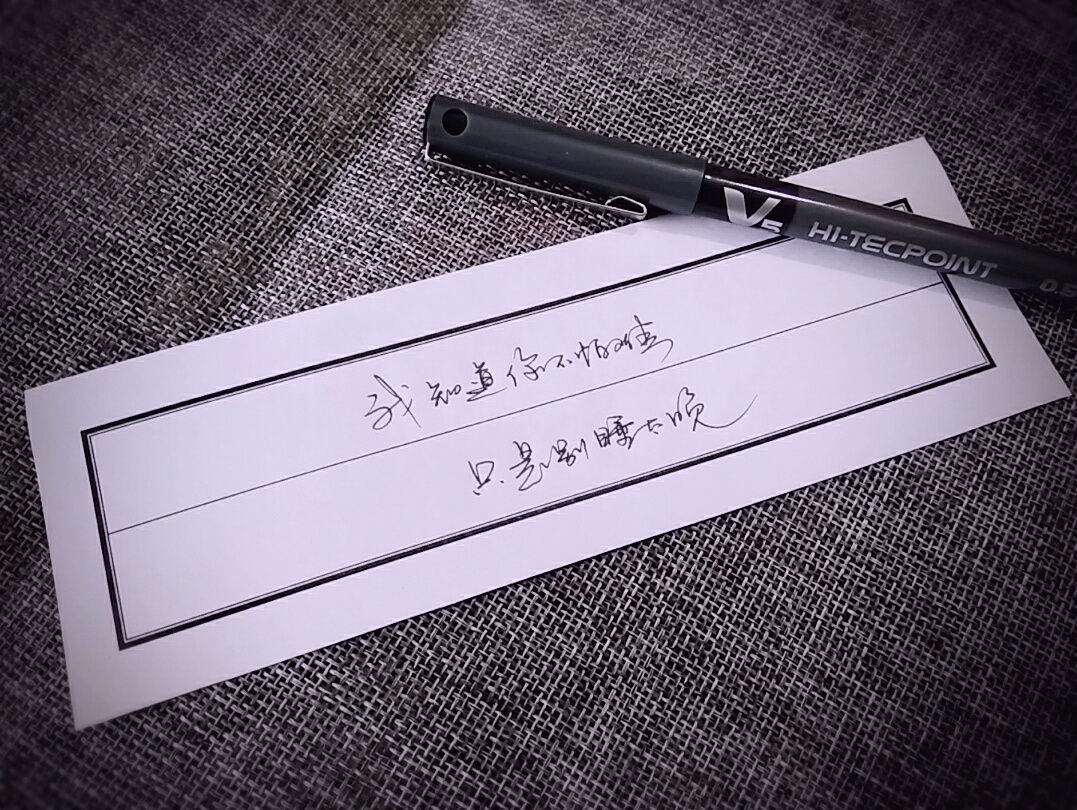 V5 HI-TECPOINT 0.5
我知道你不怕难
只是别睡太晚